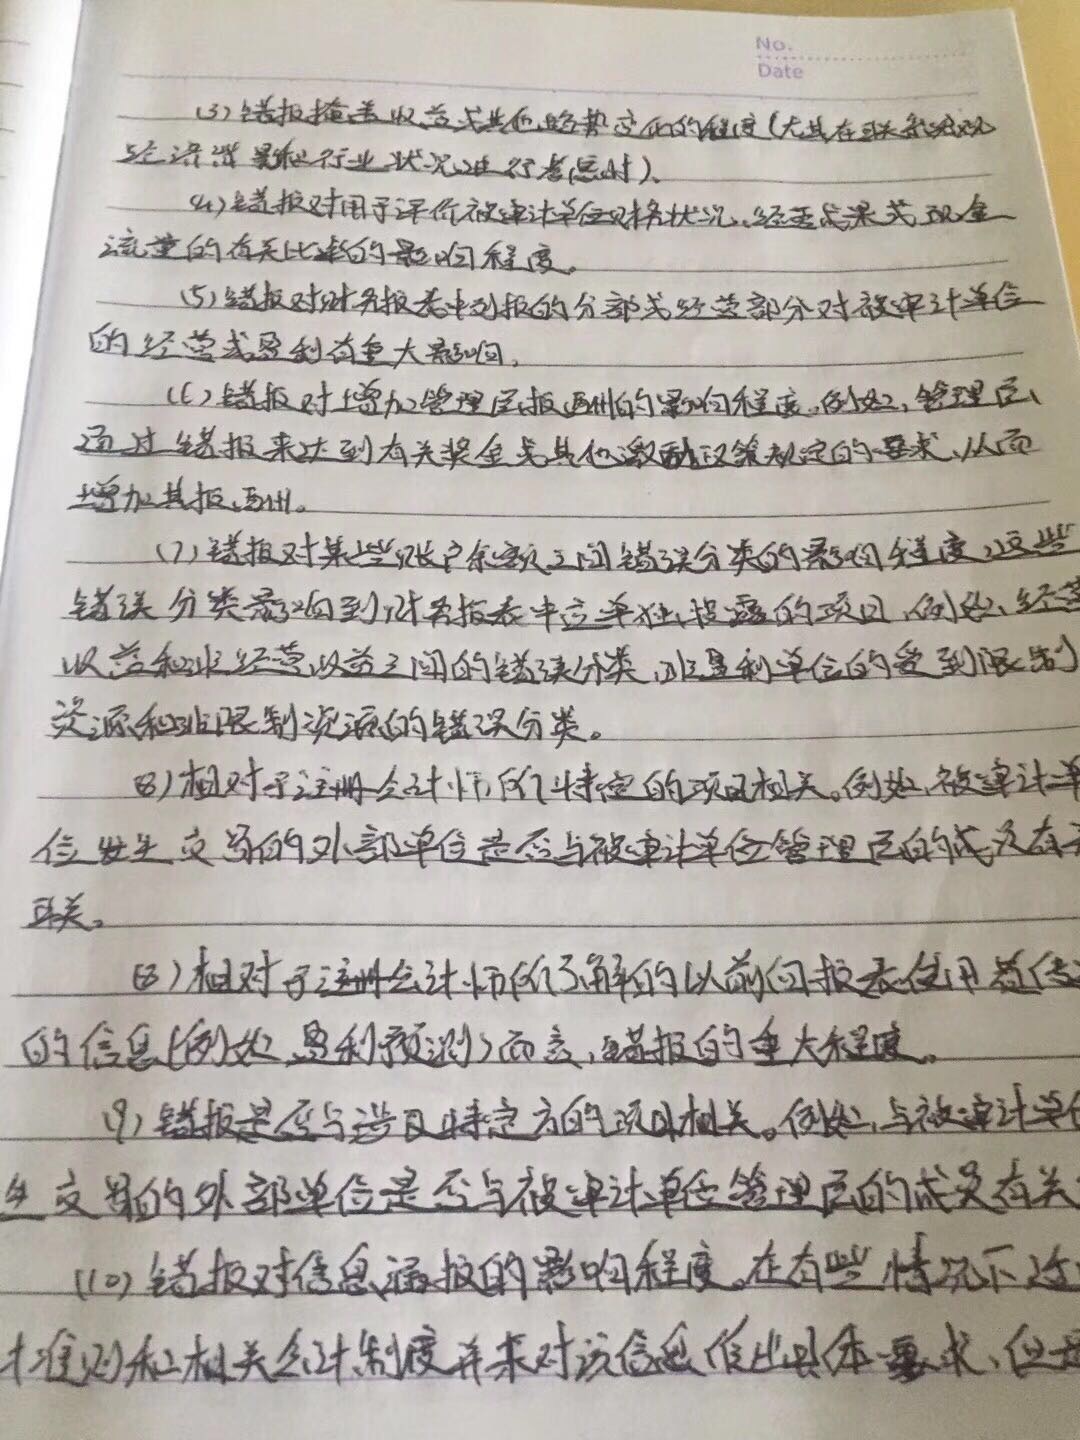 No.
Date
(3)错报掩盖收益或其他趋势变化的程度(尤其在联系宏观
经济背景和行业状况进行考虑时)、
(4)错报对用于评价被审计单位财务状况、经营成果或现金
流量的有关比率的影响程度。
(5)错报对财务报表中列报的分部或经营部分对被审计单位
的经营或盈利有重大影响。
(6)错报对增加管理层报酬的影响程度。例如,管理层
通过错报来达到有关奖金或其他激励政策规定的要求、从而
增加其报酬。
(7)错报对某些账户余额之间错误分类的影响程度,这些
错误分类影响到财务报表中应单独披露的项目,例如,经营
收益和非经营收益之间的错误分类,非盈利单位的受到限制
资源和非限制资源的错误分类。
(8)相对于注册会计师所特定的项目相关。例如,被审计单
位发生交易的外部单位是否与被审计单位管理层的成员有关
联。
(8)相对于注册会计师所了解的以前向报表使用者传
的信息(例如,盈利预测)而言,错报的重大程度。
(9)错报是否与涉及特定方的项目相关。例如,与被审计单位
生交易的外部单位是否与被审计单位管理层的成员有关
(10)错报对信息漏报的影响程度。在有些情况下适
准则和相关会计制度并未对该信息作出具体要求、但是